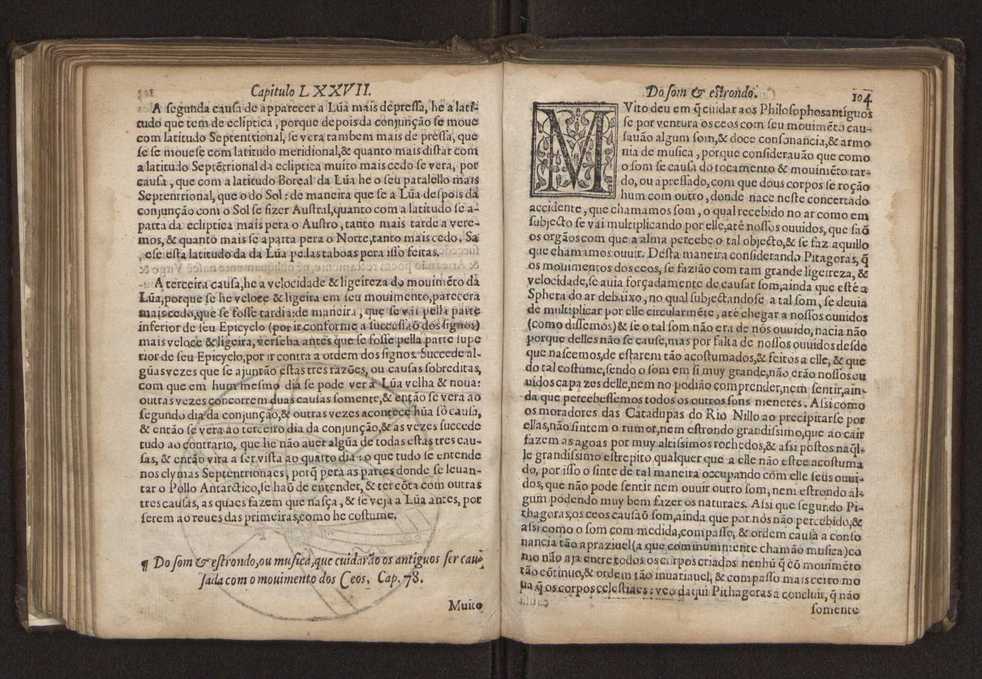 Capitulo LXXVII.
A segunda causa de apparecer a Lũa mais depressa, he a lati-
tudo que tem de ecliptica, porque depois da conjunção se moue
com latitudo Septentrional, se vera tambem mais de pressa, que
se se mouese com latitudo meridional, & quanto mais distar com
a latitudo Septẽtrional da ecliptica muito mais cedo se vera, por
causa, que com a latitudo Boreal da Lũa he o seu paralello mais
Septentrional, que o do Sol: de maneira que se a Lũa despois da
conjunção com o Sol se fizer Austral, quanto com a latitudo se a-
parta da ecliptica mais pera o Austro, tanto mais tarde a vere-
mos, & quanto mais se aparta pera o Norte, tanto mais cedo. Sa
, e se esta latitudo da da Lũa pellas taboas pera isso feitas.
A terceira causa, he a velocidade & ligeireza do movimẽto da
Lũa, porque se he veloce & ligeira em seu mouimento, parecera
mais cedo, que se fosse tardia: de maneira, que se vai pella parte
inferior de seu Epicyclo (por ir conforme a successão dos signos)
mais veloce & ligeira, verseha antes que se fosse pella parte supe
rior de seu Epicyclo, por ir contra a ordem dos signos. Succede al-
gũas vezes que se ajuntão estas tres razões, ou causas sobreditas,
com que em hum mesmo dia se pode ver a Lũa velha & noua:
outras vezes concorrem duas causas somente, & então se vera ao
segundo dia da conjunção, & outras vezes acontece hũa só causa,
& então se vera ao terceiro dia da conjunção, & as vezes succede
tudo ao contrario, que he não auer algũa de todas estas tres cau-
sas, & então vira a ser vista ao quarto dia: o que tudo se entende
nos clymas Septentrionaes, porq̃ pera as partes donde se leuan-
tar o Pollo Antarctico, se haũ de entender, & ter cõta com outras
tres causas, as quaes fazem que nasça, & se veja a Lũa antes, por
serem ao reues das primeiras, como he costume.
¶ Do som & estrondo, ou musica, que cuidarão os antiguos ser cau
sada com o mouimento dos Ceos, Cap. 78.
Muito
Do som & estrondo. 104
MVito deu em q̃ cuidar aos Philosophos antiguos
se por ventura os ceos com seu mouimẽto cau-
sauão algum som, & doce consonancia, & armo
nia de musica, porque considerauão que como
o som se causa do tocamento & mouimẽto tar-
do, ou apressado, com que dous corpos se roção
hum com outro, donde nace neste concertado
accidente, que chamamos som, o qual recebido no ar como em
subjecto se vai multiplicando por elle, até nossos ouuidos, que saõ
os orgãos com que a alma percebe o tal objecto, & se faz aquillo
que chamamos ouuir. Desta maneira considerando Pitagoras, q̃
os mouimentos dos ceos, se fazião com tam grande ligeireza, &
velocidade, se auia forçadamente de causar som, ainda que esté a
Sphera do ar debaixo, no qual subjectandose a tal som, se deuia
de multiplicar por elle circularmẽte, até chegar a nossos ouuidos
(como dissemos) & se o tal som não era de nós ouuido, nacia não
porque delles não se cause, mas por falta de nossos ouuidos desde
que nascemos, de estarem tão acostumados, & feitos a elle, & que
do tal costume, sendo o som em si muy grande, não erão nossos ou
uidos capazes delle, nem no podião comprender, nem sentir, ain-
da que percebessemos todos os outros sons menores. Assi como
os moradores das Catadupas do Rio Nillo ao precipitarse por
ellas, não sintem o rumor, nem estrondo grandissimo, que ao cair
fazem as agoas por muy altissimos rochedos, & assi postos naq̃l-
le grandissimo estrepito qualquer que a elle não estee acostuma
do, por isso o sinte de tal maneira occupando cõm elle seũs ouui-
dos, que não pode sentir nem ouuir outro som, nem estrondo al-
gum podendo muy bem fazer os naturaes. Assi que segundo Pi-
thagoras, os ceos causaõ som, ainda que por nós não percebido, &
assi como o som com medida, compasso, & ordem causa a conso
nancia tão apraziuel (a que commummente chamão musica) co
mo não aja entre todos os corpos criados nenhũ q̃ cõ mouimẽto
tão cõtinuo, & ordem tão inuariauel, & compasso mais certo mo
ua, q̃ os corpos celestiaes: veo daqui Pithagoras a concluir, q̃ não
somente